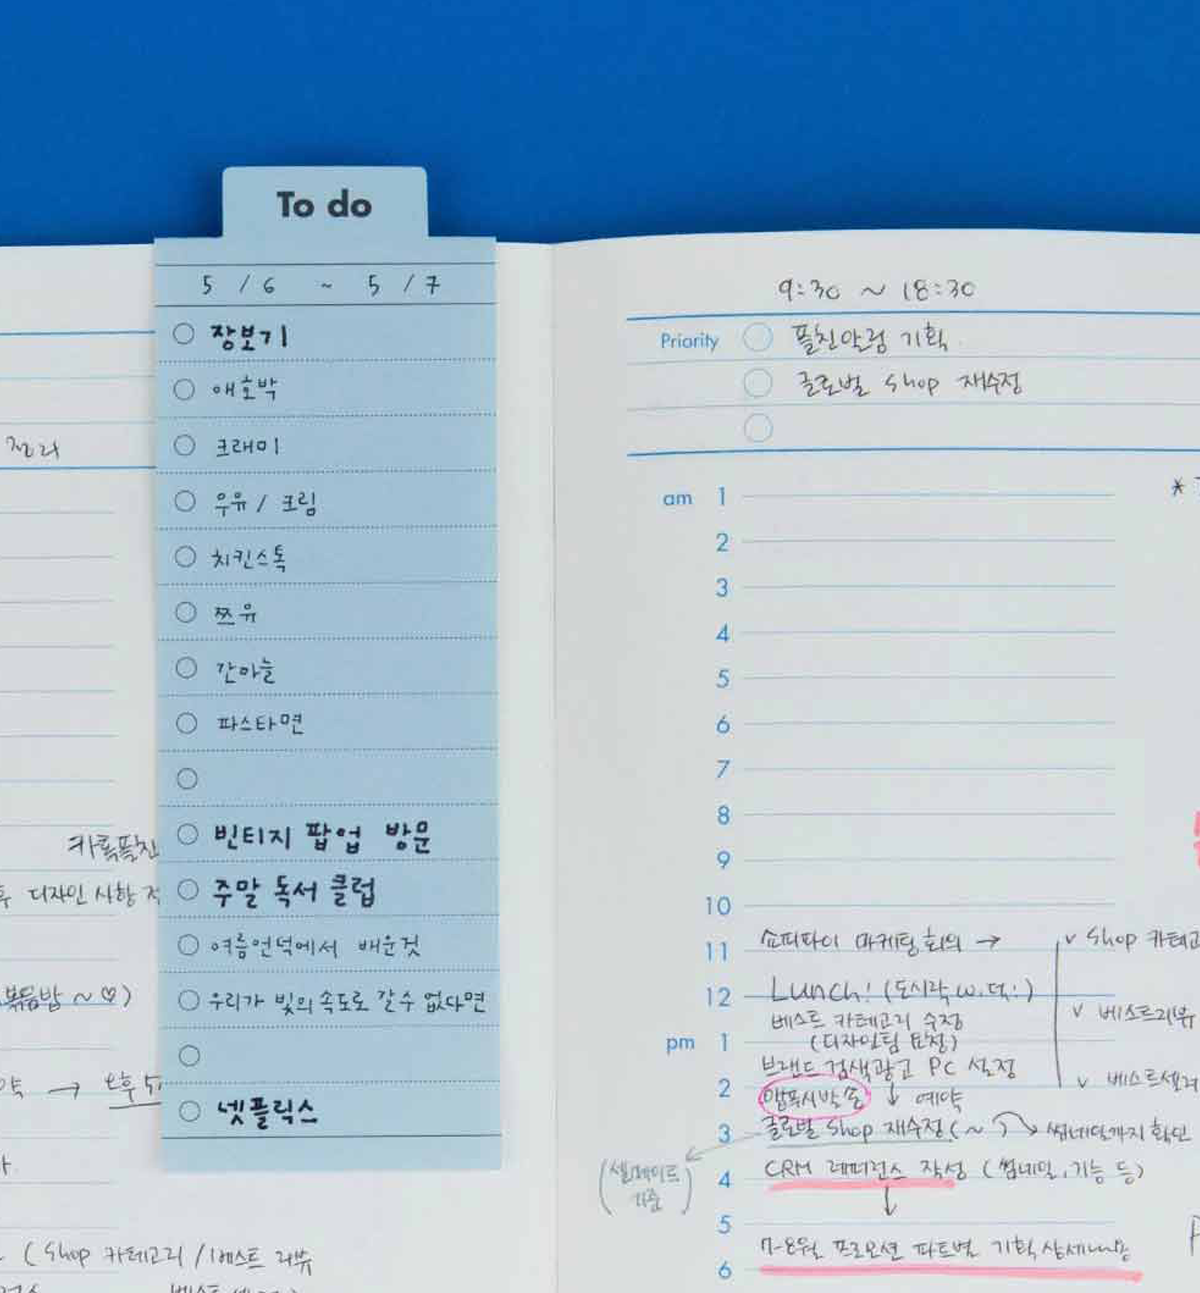 To do
5 / 6 ~ 5 / 7
장보기
애호박
크래미
우유 / 크림
치킨스톡
쯔유
간마늘
파스타면
빈티지 팝업 방문
주말 독서 클럽
여름언덕에서 배운것
우리가 빛의 속도로 갈 수 없다면
넷플릭스
디자인 사항
볶음밥 ~ ♡)
→ 오후
(Shop 카테고리 / 베스트 리뷰
9:30 ~ 18:30
Priority 필친알림 기획
글로벌 Shop 재수정
am 1
2
3
4
5
6
7
8
9
10
11 쇼피파이 마케팅 회의 → v Shop 카테고
12 Lunch! (도시락 w.
v 베스트리뷰
베스트 카테고리 수정
pm 1 (디자인팀 요청)
브랜드 검색광고 PC 설정
v 베스트셀러
2 앱푸시발송 ↓ 예약
3 글로벌 Shop 재수정 (~ ) → 썸네일까지 확인
4 CRM 레퍼런스 작성 (썸네일, 기능 등)
기준)
↓
5
7-8월 프로모션 파트별 기획 상세내용
6